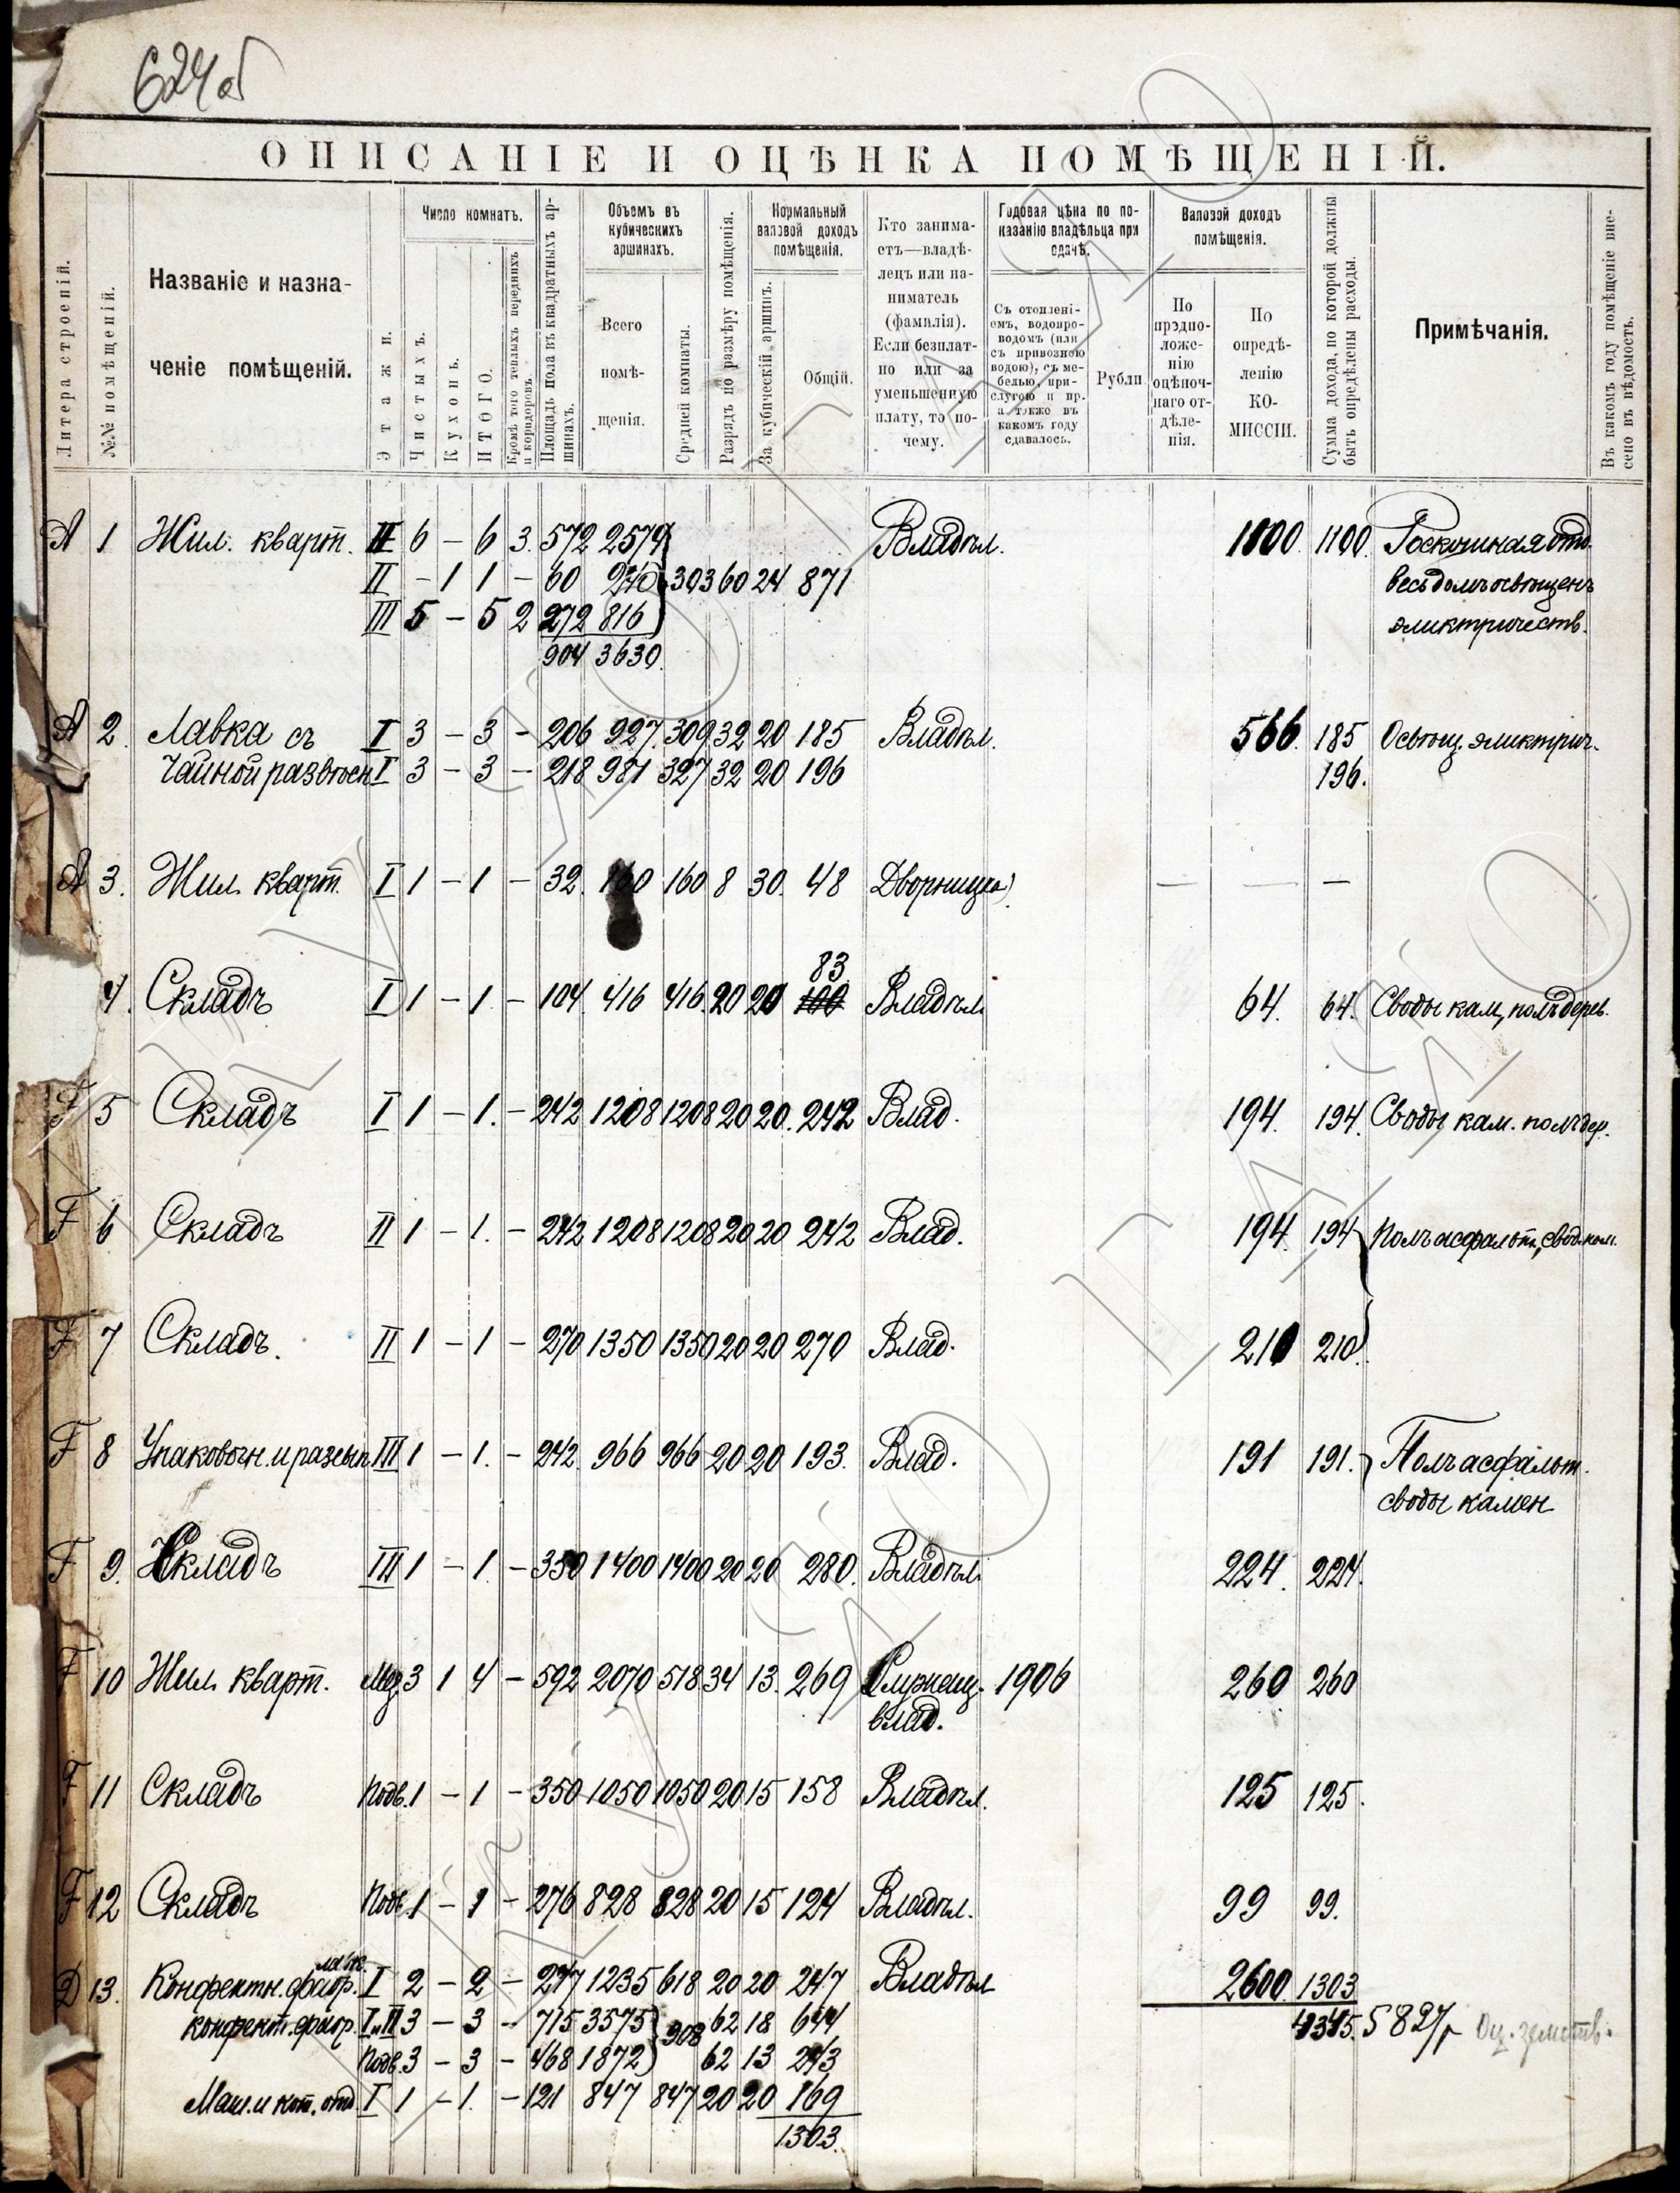 624 об
ОПИСАНІЕ И ОЦѢНКА ПОМѢЩЕНІЙ.
Литера строеній.
№№ помѣщеній.
Названіе и назна-
ченіе помѣщеній.
Этажи.
Число комнатъ.
Чистыхъ.
Кухонь.
ИТОГО.
Кромѣ того теплыхъ переднихъ
и коридоровъ.
Площадь пола въ квадратныхъ ар-
шинахъ.
Объемъ въ
кубическихъ
аршинахъ.
Всего
помѣ-
щенія.
Средней комнаты.
Разрядъ по размѣру помѣщенія.
Нормальный
валовой доходъ
помѣщенія.
За кубическій аршинъ.
Общій.
Кто занима-
етъ—владѣ-
лецъ или на-
ниматель
(фамилія).
Если безплат-
но или за
уменьшенную
плату, то по-
чему.
Годовая цѣна по по-
казанію владѣльца при
сдачѣ.
Съ отоплені-
емъ, водопро-
водомъ (или
съ привозною
водою), съ ме-
белью, при-
слугою и пр.
а также въ
какомъ году
сдавалось.
Рубли.
Валовой доходъ
помѣщенія.
По
предпо-
ложе-
нію
оцѣноч-
наго от-
дѣле-
нія.
По
опредѣ-
ленію
КО-
МИССІИ.
Сумма дохода, по которой должны
быть опредѣлены расходы.
Примѣчанія.
Въ какомъ году помѣщеніе вне-
сено въ вѣдомость.
А 1 Жил. кварт. II 6 – 6 3. 572 2574 Владѣл. 1100. 1100. Роскошная отд.
II – 1 1 – 60 240 303 60 24 871 весь домъ освѣщенъ
III 5 – 5 2 272 816 электричеств.
904 3630.
А 2. Лавка съ I 3 – 3 – 206 927. 309 32 20 185 Владѣл. 566. 185 Освѣщ. электрич.
Чайной развѣсн. I 3 – 3 – 218 981 327 32 20 196 196.
А 3. Жил. кварт. I 1 – 1 – 32. 160 160 8 30. 48 Дворницкая — — —
83
4. Складъ I 1 – 1 – 104 416 416. 20 20 100 Владѣл. 64. 64. Своды кам, полъ дерев.
F 5 Складъ I 1 – 1. – 242 1208 1208 20 20. 242 Влад. 194. 194. Своды кам. полъ дер.
F 6 Складъ II 1 – 1. – 242 1208 1208 20 20 242 Влад. 194. 194 Полъ асфальт., свод. кам.
F 7 Складъ. II 1 – 1 – 270 1350 1350 20 20 270 Влад. 210 210.
F 8 Упаковочн. и разсып. III 1 – 1. – 242. 966 966 20 20 193. Влад. 191 191. Полъ асфальт.
своды камен
F 9. Складъ III 1 – 1 – 350 1400 1400 20 20 280. Владѣл. 224. 224.
F 10 Жил. кварт. Мез. 3 1 4 – 592 2070 518 34 13. 269 Служащ. 1906 260 260
влад.
F 11 Складъ Подв. 1 – 1 – 350 1050 1050 20 15 158 Владѣл. 125 125.
F 12 Складъ Подв. 1 – 1 – 276 828 828 20 15 124 Владѣл. 99 99.
D 13. Конфектн. фабр. I 2 – 2 – 247 1235 618 20 20 247 Владѣл 2600. 1303
конфект. фабр. I и II 3 – 3 – 715 3575 908 62 18 644 4345. 5827 р Оц. земств.
Подв. 3 – 3 – 468 1872 62 13 243
Маш. и кот. отд. I 1 – 1. – 121 847 847 20 20 169
1303.